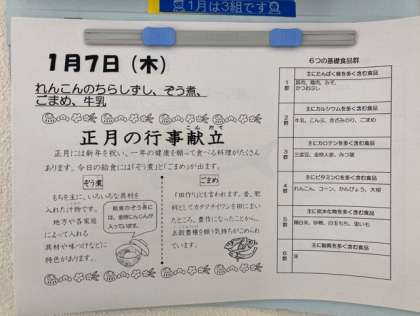 1月は3組です
1月7日（木）
れんこんのちらしずし、ぞう煮、
ごまめ、牛乳
正月の行事献立
こん だて
正月には新年を祝い、一年の健康を願って食べる料理がたくさん
あります。今日の給食には「ぞう煮」と「ごまめ」が出ます。
ぞう煮
もちを主に、いろいろな具材を
入れた汁物です。
地方や各家庭
によって入れる
具材や味つけなどに
特色があります。
給食のぞう煮に
は、金時にんじんが
入っています。
ごまめ
「田作り」とも言われます。昔、肥
料としてカタクチイワシを田にまい
たところ、豊作になったことから、
五穀豊穣を願う気持ちがこめられ
ています。
6つの基礎食品群
主にたんぱく質を多く含む食品
1群
かつお節
主にカルシウムを多く含む食品
2群
牛乳、こんぶ、きざみのり、ごまめ
主にカロテンを多く含む食品
3群
三度豆、金時人参、みつ葉
主にビタミンCを多く含む食品
4群
れんこん、コーン、かんぴょう、大根
主に炭水化物を多く含む食品
5群
精白米、砂糖、白玉もち、里いも
主に脂質を多く含む食品
6群
油